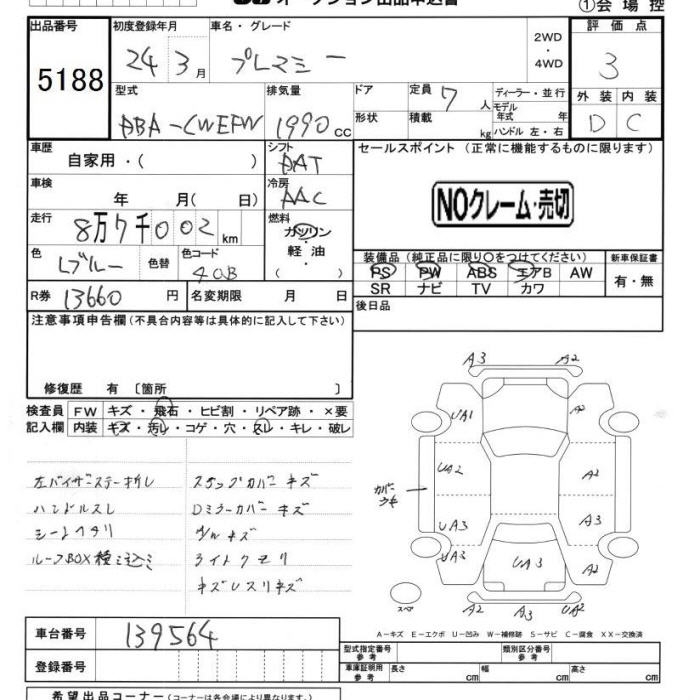 オークション出品申込書
①会場控
出品番号 初度登録年月 車名・グレード 2WD・4WD 評価点
5188 24年3月 プレマシー 3
外装 内装
D C
型式 排気量 ドア 定員 7人 ディーラー・並行
DBA-CWEFW 1990cc 形状 積載 kg モデル年式 年
ハンドル 左・右
車歴 自家用・( ) シフト DAT セールスポイント (正常に機能するものに限ります)
車検 年 月( 日) 冷房 AAC
NOクレーム・売切
走行 8万7千002km 燃料 ガソリン・軽油・( )
色 Lブルー 色替 色コード 40B
装備品 (純正品に限り○をつけてください) 新車保証書
PS PW ABS エアB AW 有・無
SR ナビ TV カワ
R券 13660円 名変期限 月 日
後日品
注意事項申告欄 (不具合内容等は具体的に記入して下さい)
修復歴 有 〔箇所 〕
検査員 FW キズ・飛石・ヒビ割・リペア跡・×要
記入欄 内装 キズ・汚レ・コゲ・穴・スレ・キレ・破レ
左バイザーステー折レ ステップカバーキズ
ハンドルスレ Dミラーカバーキズ
シートヘタリ A/Wキズ
ルーフBOX種ミ込ミ ライトクモリ
キズレスリキズ
A3 A2
UA1 A2
カバーウキ UA2 A2
UA3 A3
UA3 UA3 A2
スペア
A2 A3 UA2
A-キズ E-エクボ U-凹み W-補修跡 S-サビ C-腐食 XX-交換済
車台番号 139564
登録番号
型式指定番号 参考 類別区分番号 参考
車庫証明用 参考 長さ cm 幅 cm 高さ cm
希望出品コーナー (コーナーは各会場により異なります)